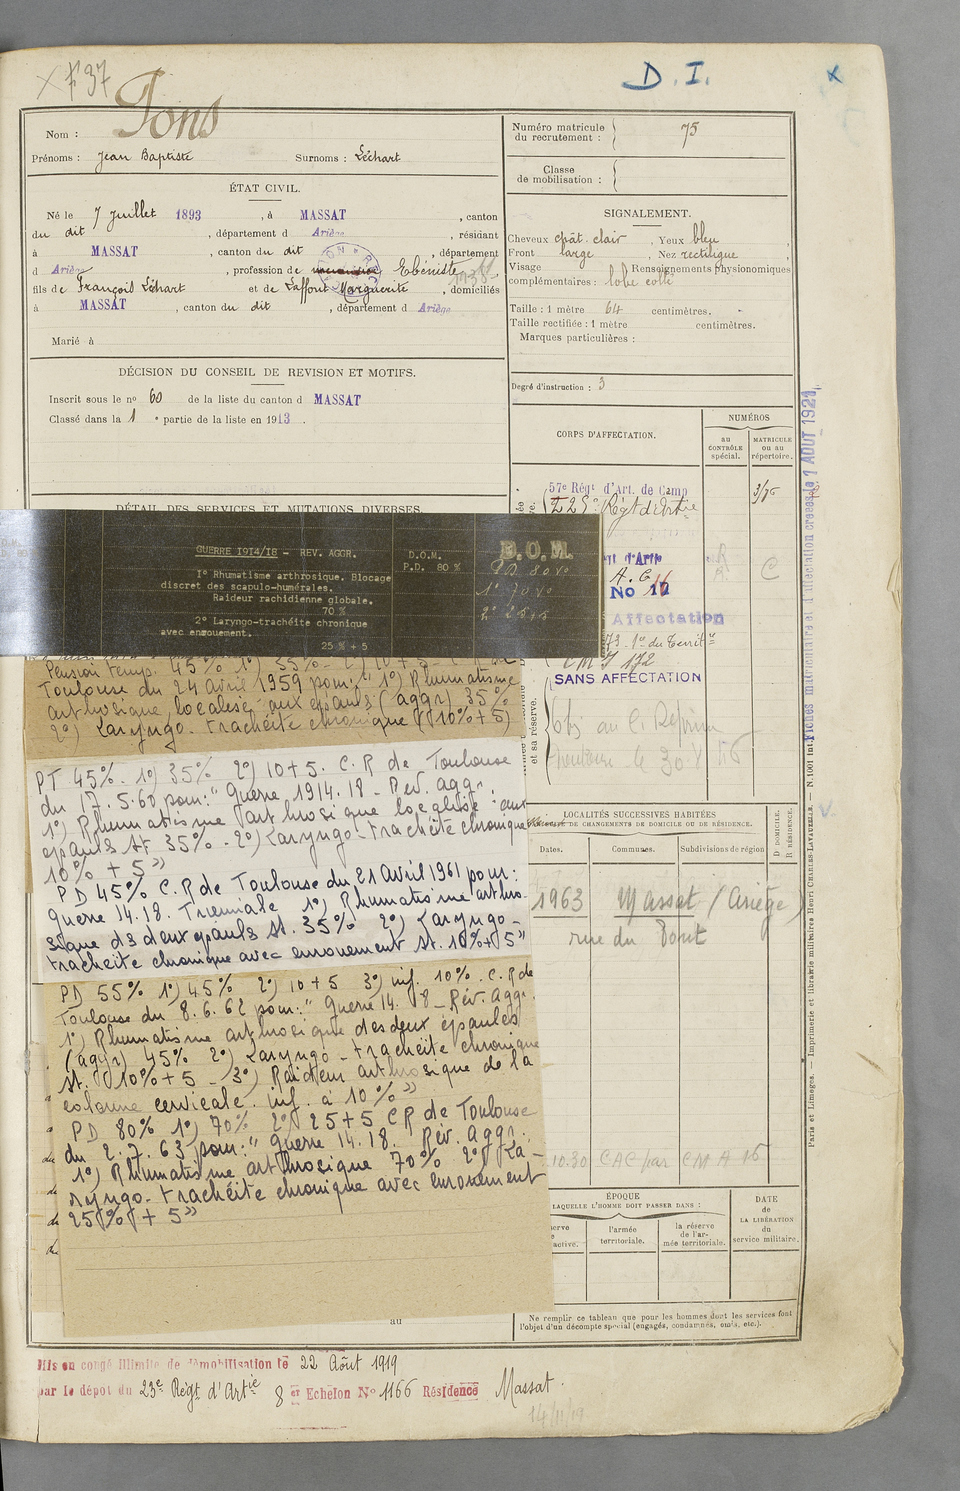 F 37
D. I.
Nom : Pons
Prénoms : Jean Baptiste Surnoms : Léchart
ÉTAT CIVIL.
Né le 7 Juillet 1893, à MASSAT, canton
du dit, département d Ariège, résidant
à MASSAT, canton du dit, département
d Ariège, profession de Ebéniste,
fils de François Léchart et de Laffont Marguerite, domiciliés
à MASSAT, canton du dit, département d Ariège
Marié à
DÉCISION DU CONSEIL DE REVISION ET MOTIFS.
Inscrit sous le no 60 de la liste du canton d MASSAT
Classé dans la 1 e partie de la liste en 1913.
DÉTAIL DES SERVICES ET MUTATIONS DIVERSES.
Numéro matricule du recrutement : 75
Classe de mobilisation :
SIGNALEMENT.
Cheveux chât. clair, Yeux bleu
Front large, Nez rectiligne
Visage Renseignements physionomiques
complémentaires : lobe collé
Taille : 1 mètre 64 centimètres.
Taille rectifiée : 1 mètre centimètres.
Marques particulières :
Degré d'instruction : 3
CORPS D'AFFECTATION.
NUMÉROS
au CONTRÔLE spécial.
MATRICULE ou au répertoire.
57e Régt d'Art. de Camp
Régt d'Artie
No
Affectation
SANS AFFECTATION
et sa réserve.
D.O.M.
GUERRE 1914/18 - REV. AGGR.
D.O.M.
P.D. 80 %
1° Rhumatisme arthrosique. Blocage
discret des scapulo-humérales.
Raideur rachidienne globale.
70 %
2° Laryngo-trachéite chronique
avec enrouement.
25 % + 5
Pension Temp. 45% 1°) 35% - 2°) 10 + 5 -
Toulouse du 24 avril 1959 pour: "1°) Rhumatisme
arthrosique, localisé aux épaules (aggr) 35%
2°) Laryngo-trachéite chronique (10% + 5)
PT 45%. 1°) 35% 2°) 10+5. C.R de Toulouse
du 17.5.60 pour: "Guerre 1914.18 - Rev. aggr.
1°) Rhumatisme arthrosique localisé aux
épaules st 35% - 2°) Laryngo-trachéite chronique
10% + 5"
PD 45% C.R de Toulouse du 21 Avril 1961 pour:
guerre 14.18. Triennale 1°) Rhumatisme arthro-
sique ds deux épauls st. 35% 2°) Laryngo-
trachéite chronique avec enrouement st. 10% + 5"
PD 55% 1°) 45% 2°) 10+5 3°) inf. 10%. C.R de
Toulouse du 8.6.62 pour: "Guerre 14.18 - Rév. Aggr.
1°) Rhumatisme arthrosique des deux épaules
(aggr) 45% 2°) Laryngo-trachéite chronique
st. 10% + 5 - 3°) Raideur arthrosique de la
colonne cervicale. inf. à 10%"
PD 80% 1°) 70% 2°) 25+5 CR de Toulouse
du 2.7.63 pour: "Guerre 14.18. Rév. Aggr.
1°) Rhumatisme arthrosique 70% 2°) La-
ryngo-trachéite chronique avec enrouement
25% + 5"
LOCALITÉS SUCCESSIVES HABITÉES
DE CHANGEMENTS DE DOMICILE OU DE RÉSIDENCE.
D DOMICILE.
R RÉSIDENCE.
Dates. Communes. Subdivisions de région
1963 Massat (Ariège)
rue du Pont
ÉPOQUE
LAQUELLE L'HOMME DOIT PASSER DANS :
l'armée territoriale.
la réserve de l'armée territoriale.
DATE de LA LIBÉRATION du service militaire.
Ne remplir ce tableau que pour les hommes dont les services font
l'objet d'un décompte spécial (engagés, condamnés, omis, etc.).
au
Mis en congé illimité de démobilisation le 22 Août 1919
par le dépôt du 23e Régt d'Artie 8 er Echelon No 1166 Résidence Massat.
Paris et Limoges. — Imprimerie et librairie militaires Henri CHARLES-LAVAUZELLE. — N. 1001 int.